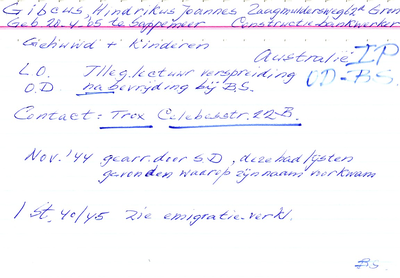 Gibcus, Hindrikus Joannes Zaagmuldersweg 12a Gron
Geb 20.4.'05 te Sappemeer Constructiebankwerker
Gehuwd + kinderen
Australië IP
L.O. Illeg. lectuur verspreiding OD=B.S.
O.D. na bevrijding bij B.S.
Contact: Trox Celebesstr. 22-B.
Nov. '44 gearr. door SD, deze had lijsten
gevonden waarop zijn naam voorkwam
1 St. 40/45 Zie emigratie-verkl.
B.S.